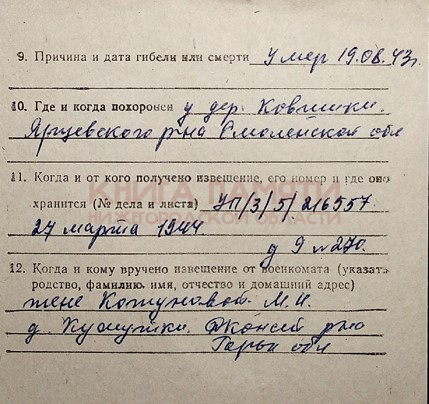 9. Причина и дата гибели или смерти умер 19.08.43г.
10. Где и когда похоронен у дер. Ковшики.
Ярцевского р-на Смоленской обл
11. Когда и от кого получено извещение, его номер и где оно
хранится (№ дела и листа) УП/3/5/216557
КНИГА ПАМЯТИ
НИЖЕГОРОДСКОЙ ОБЛАСТИ
27 марта 1944.
д 9 л 270.
12. Когда и кому вручено извещение от военкомата (указать
родство, фамилию, имя, отчество и домашний адрес)
жене М.И.
д. р-на
обл